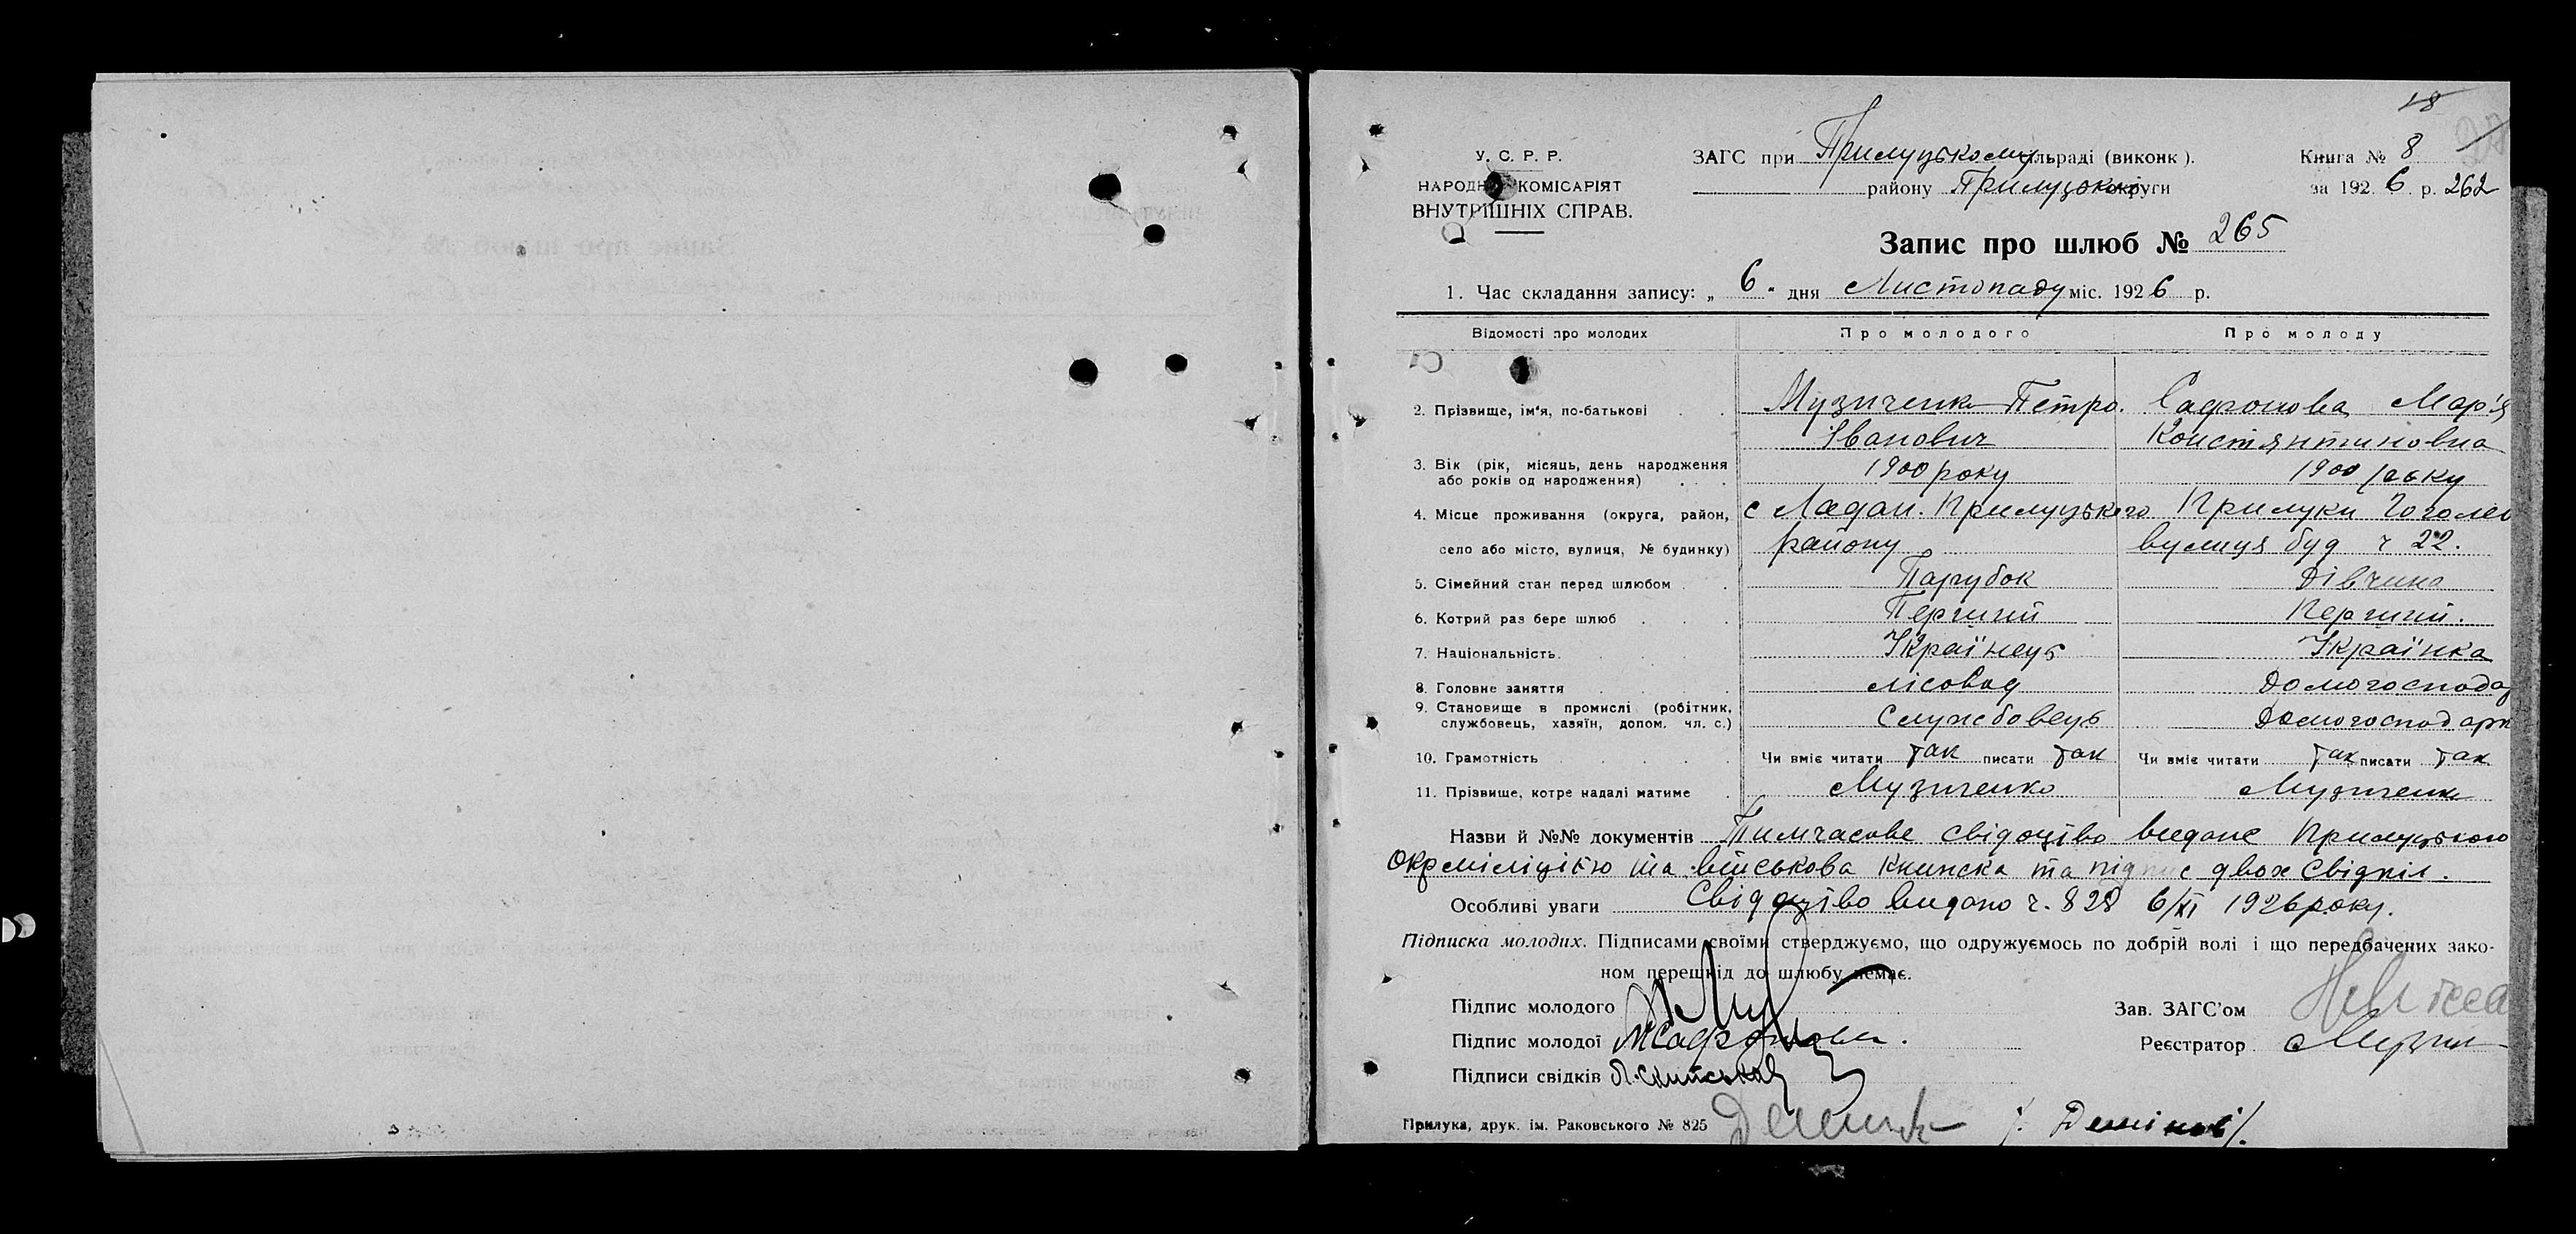 18
У. С. Р. Р.
ЗАГС при Прилуцькому сільраді (виконк).
Книга № 8
НАРОДНИЙ КОМІСАРІЯТ
району Прилуцької округи
за 1926 р. 262
ВНУТРІШНІХ СПРАВ.
Запис про шлюб № 265
1. Час складання запису: „6" дня Листопаду міс. 1926 р.
Відомості про молодих
Про молодого
Про молоду
2. Прізвище, ім'я, по-батькові
Музиченко Петро.
Сафронова Мар'я
Іванович
Констянтиновна
3. Вік (рік, місяць, день народження
або років од народження)
1900 року
1900 року
4. Місце проживання (округа, район,
с Ладан. Прилуцького
Прилуки Гоголев
село або місто, вулиця, № будинку)
району
вулиця буд ч 22.
5. Сімейний стан перед шлюбом
Парубок
Дівчина
6. Котрий раз бере шлюб
Перший
Перший.
7. Національність
Українець
Українка
8. Головне заняття
лісовод
Домогосподар
9. Становище в промислі (робітник,
службовець, хазяїн, допом. чл. с.)
Службовець
Домогосподарк
10. Грамотність
Чи вміє читати так писати так
Чи вміє читати так писати так
11. Прізвище, котре надалі матиме
Музиченко
Музиченко
Назви й №№ документів Тимчасове свідоцтво видане Прилуцького
Окрміліцією та військова книжка та підпис двох свідків.
Особливі уваги Свідоцтво видано ч. 828 6/XI 1926 року.
Підписка молодих. Підписами своїми стверджуємо, що одружуємось по добрій волі і що передбачених зако-
ном перешкід до шлюбу немає.
Підпис молодого
Зав. ЗАГС'ом
Підпис молодої МСафронова.
Реєстратор
Підписи свідків
Прилука, друк. ім. Раковського № 825